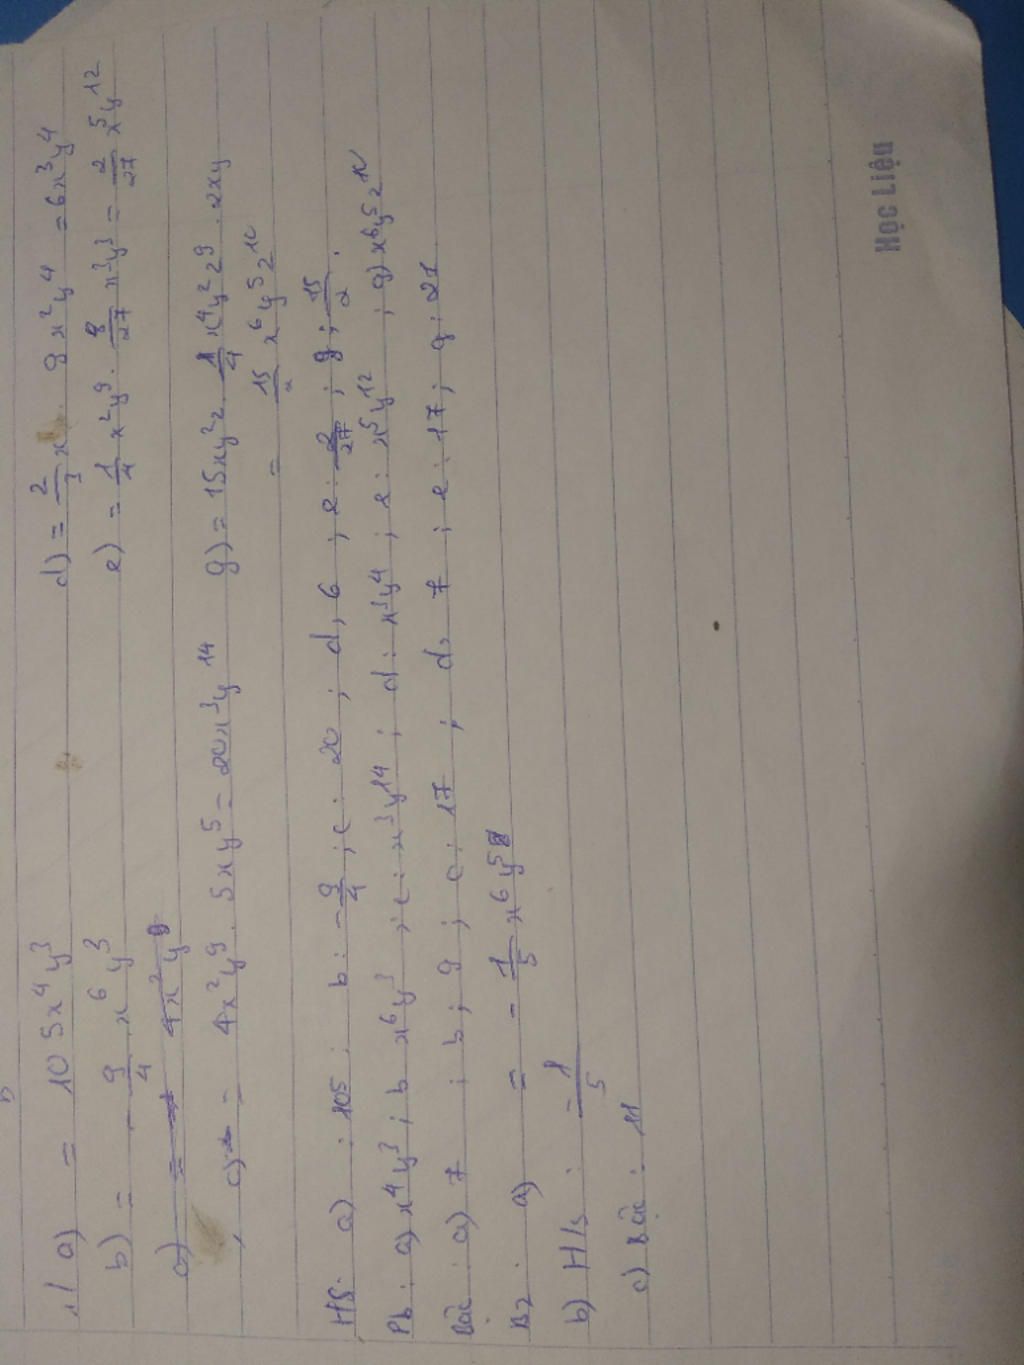 1/ a) = 105x⁴y³ d) = 2/3 x . 9x²y⁴ = 6x³y⁴
b) = -9/4 . x⁶y³ e) = 1/4 x²y⁹ . 8/27 x³y³ = 2/27 x⁵y¹²
c) = 4x²y⁹
c) = 4x²y⁹ . 5xy⁵ = 20x³y¹⁴ g) = 15xy²z . 1/4 x⁴y²z⁹ . 2xy
= 15/2 x⁶y⁵z¹⁰
HS: a) : 105 ; b : -9/4 ; c : 20 ; d, 6 ; e : 2/27 ; g : 15/2 .
Pb : a) x⁴y³ ; b x⁶y³ ; c : x³y¹⁴ ; d : x³y⁴ ; e : x⁵y¹² ; g) x⁶y⁵z¹⁰
Bậc : a) 7 ; b ; 9 ; c : 17 ; d, 7 ; e : 17 ; g : 21
B2 . a) = -1/5 x⁶y⁵
b) Hs : -1/5
c) Bậc : 11
Học Liệu